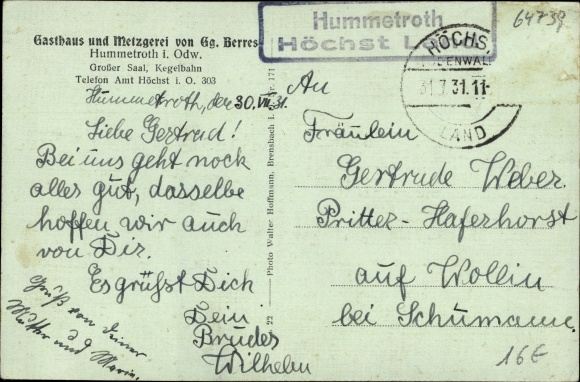 Gasthaus und Metzgerei von Gg. Berres
Hummetroth i. Odw.
Großer Saal, Kegelbahn
Telefon Amt Höchst i. O. 303
Hummetroth
Höchst Land
64739
HÖCHS
ODENWALD
31.7.31.11-
LAND
Hummetroth, den 30. VII. 31.
Liebe Gertrud!
Bei uns geht noch
alles gut, dasselbe
hoffen wir auch
von Dir.
Es grüßt Dich
Dein
Bruder
Wilhelm
Gruß von Deiner
Mutter und Maria.
22 — Photo Walter Hoffmann, Brensbach i. Nr. 171
An
Fräulein
Gertrude Weber
Pritter-Haferhorst
auf Wollin
bei Schumann.
16€